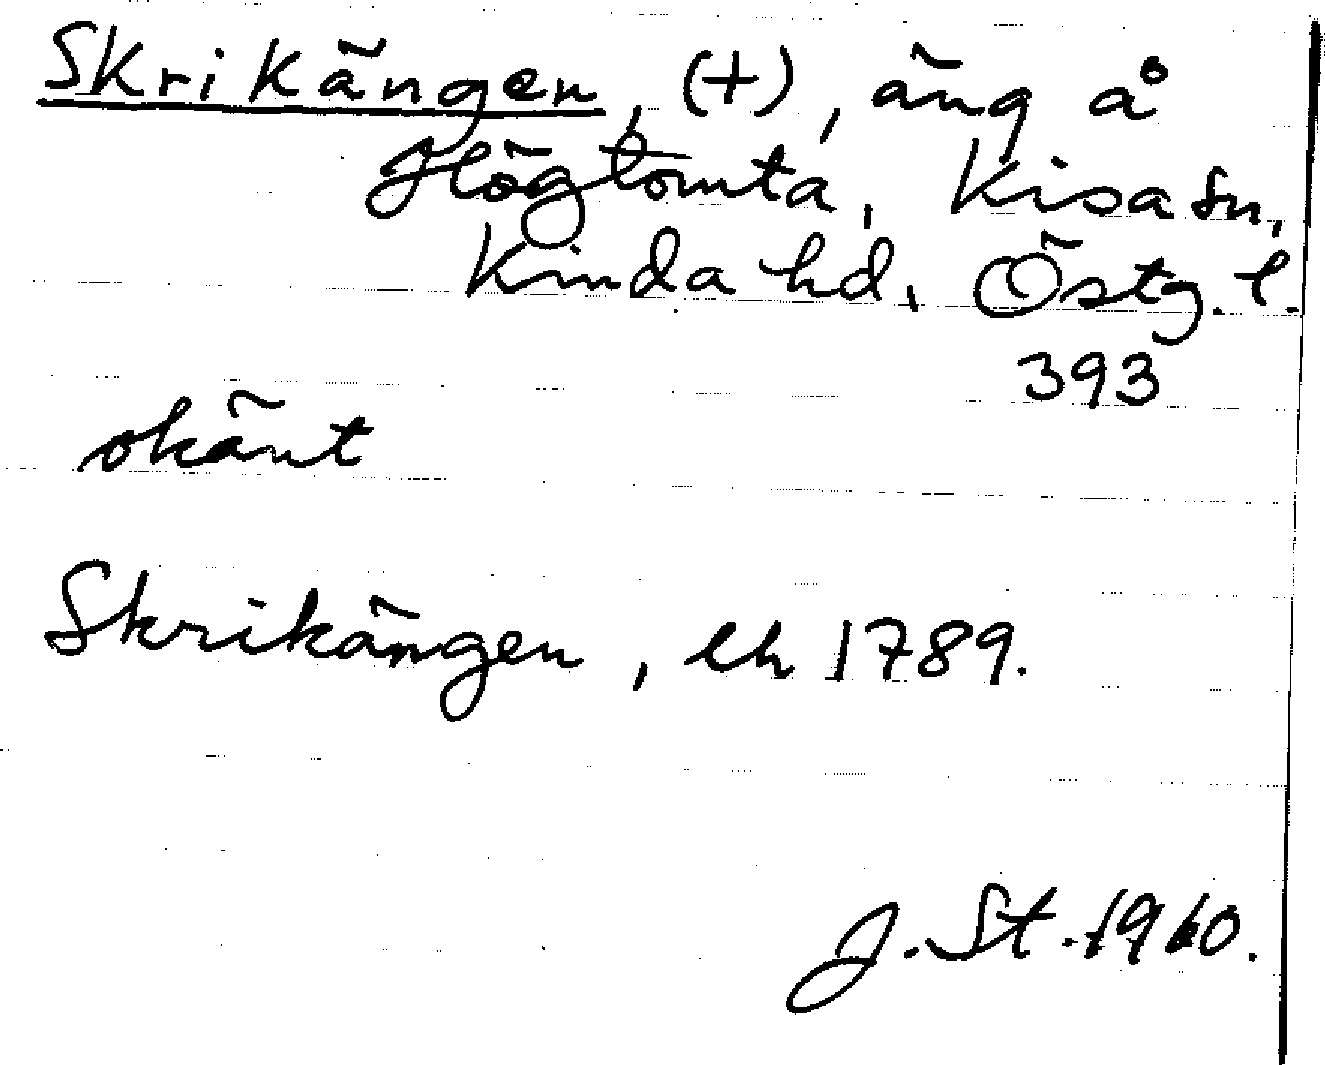 Skrikängen, (+), äng å
Högtomta, Kisa sn,
Kinda hd, Östg. l.
393
okänt
Skrikängen, lh 1789.
J. St. 1960.